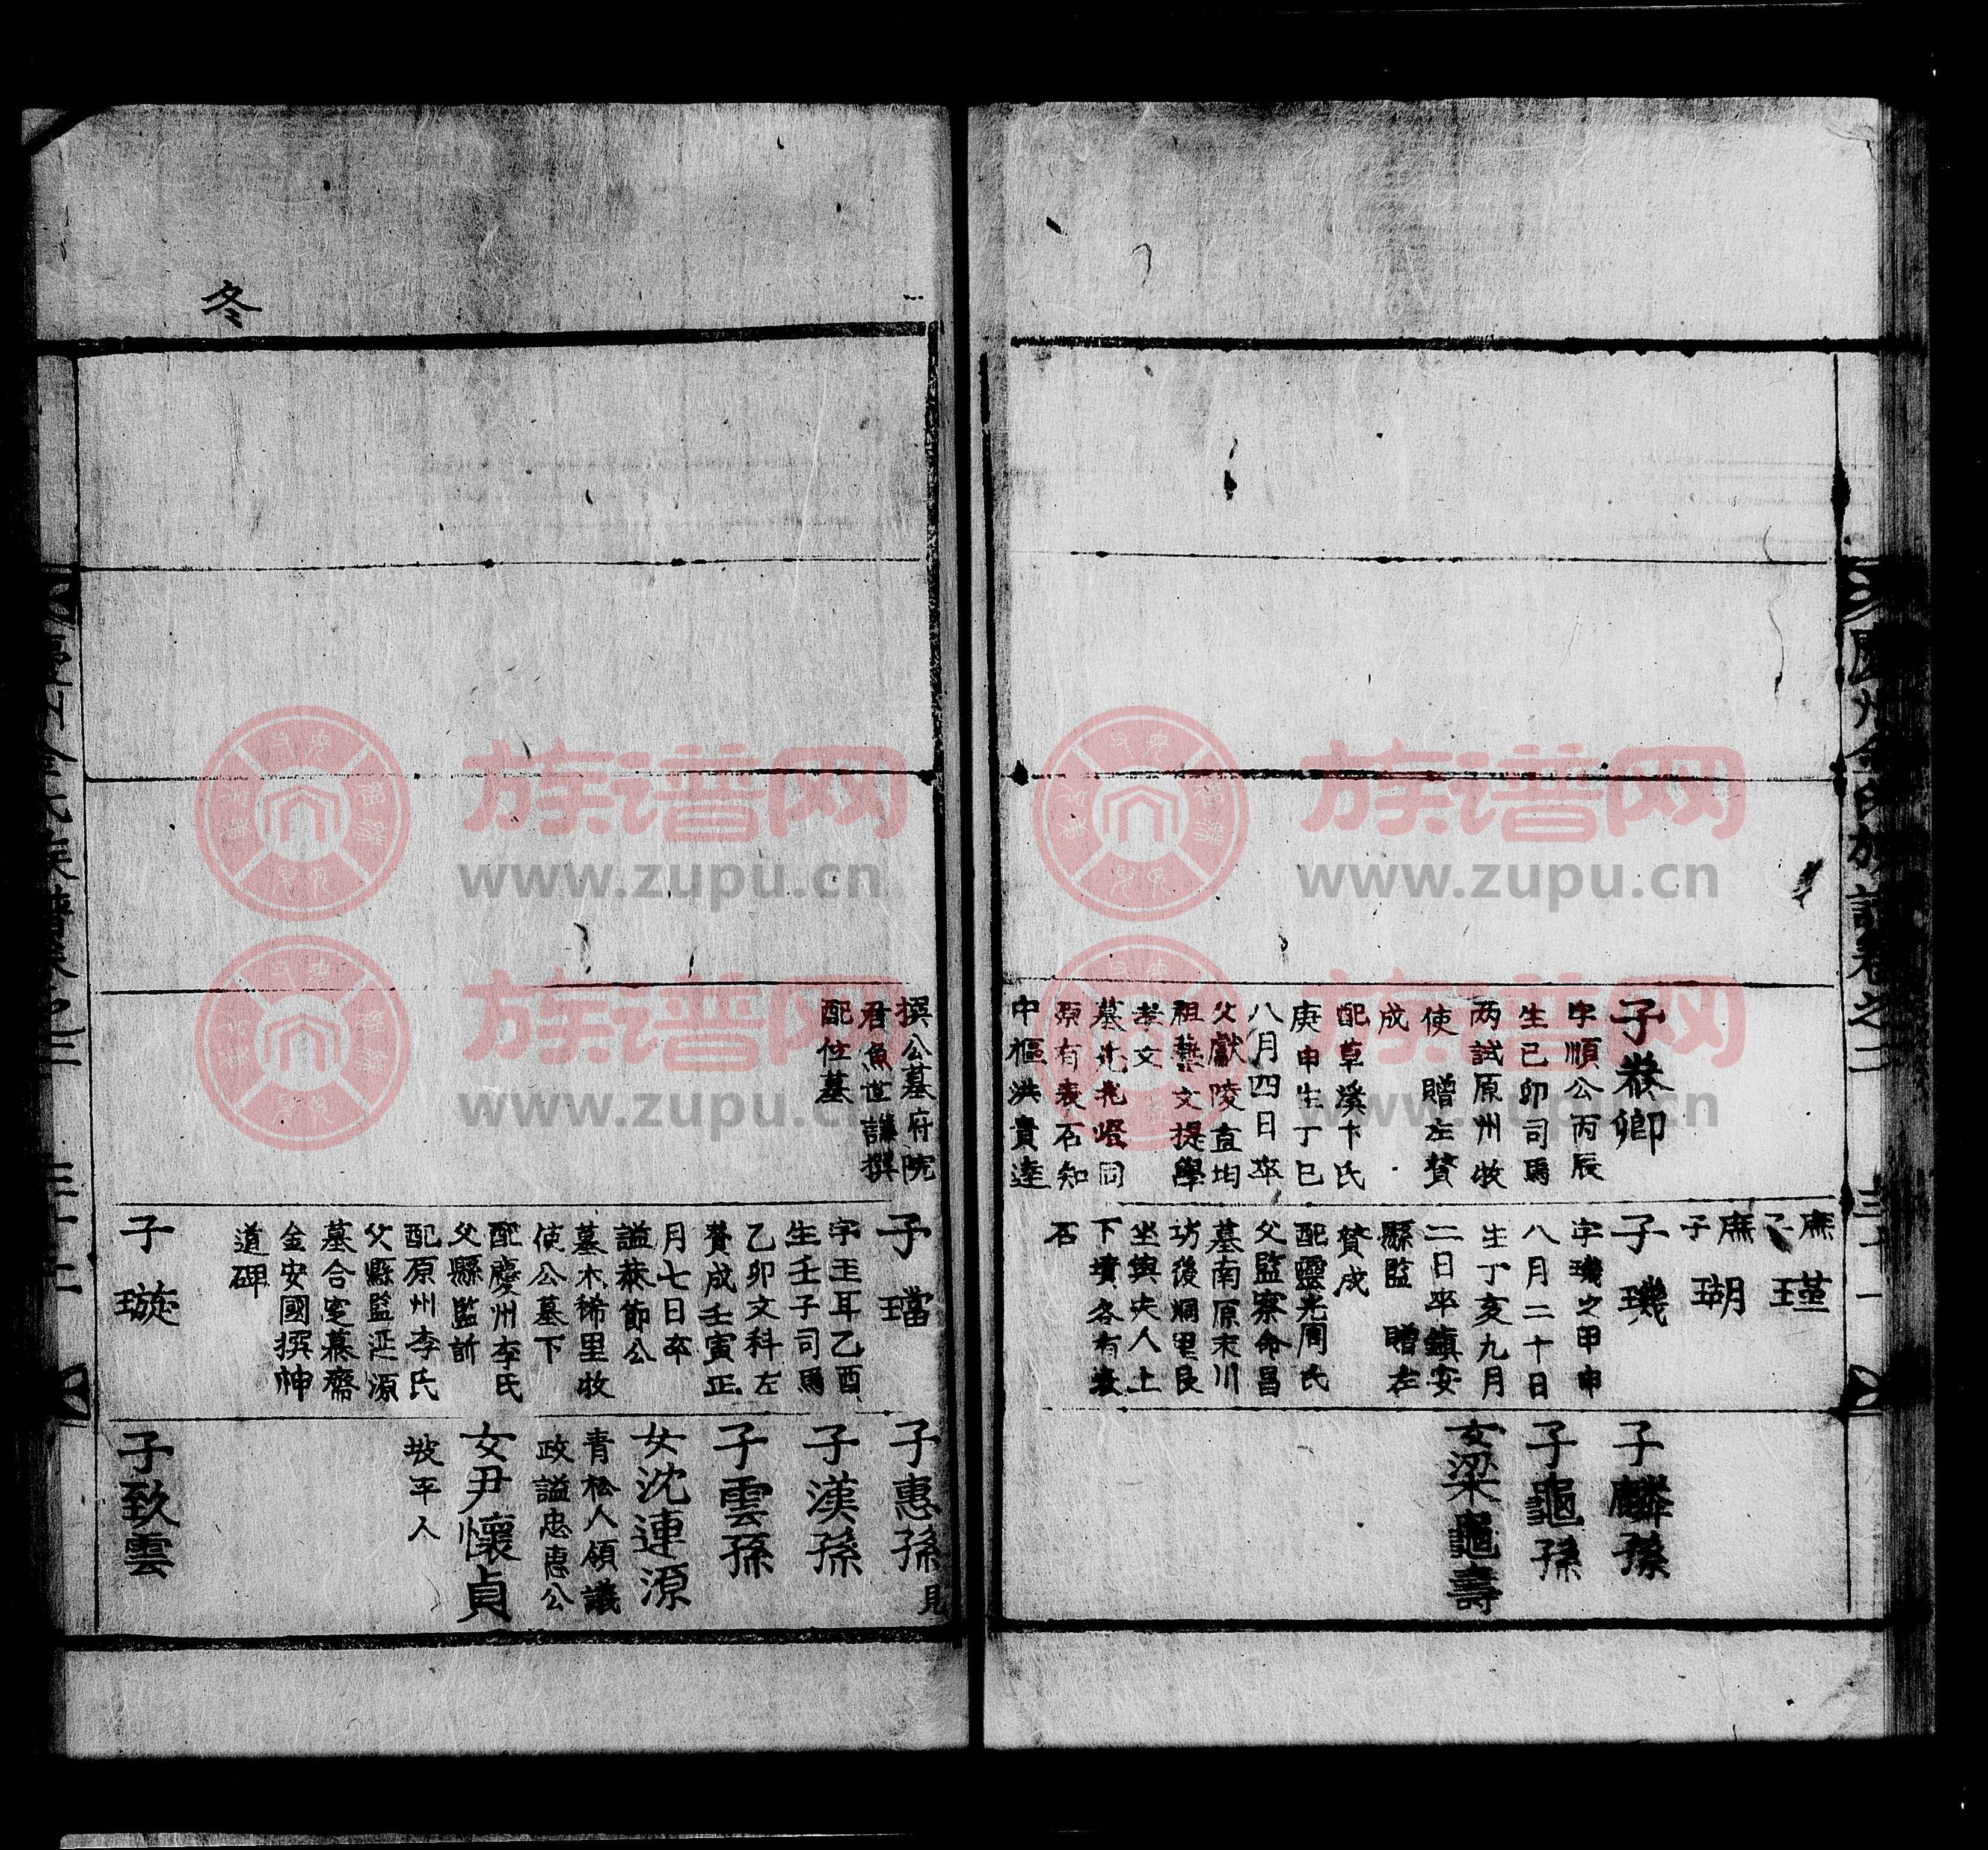 慶州金氏族譜卷之二
三十一
子恭卿
字順公丙辰
生已卯司馬
两試原州牧
使 贈左贊
成
配草溪卞氏
庚申生丁巳
八月四日卒
父獻陵直均
祖藝文提學
孝文
墓兆光燈同
原有表石知
中樞洪貴達
庶子瑾
庶子瑚
子璣
字璣之甲申
八月二十日
生丁亥九月
二日卒鎮安
縣監 贈左
賛成
配靈光周氏
父監察命昌
墓南原末川
坊後洞里艮
坐與夫人上
下墳各有表
石
子麟孫
子龜孫
女梁龜壽
撰公墓府院
君魚世謙撰
配位墓
子璫
字玉耳乙酉
生壬子司馬
乙卯文科左
賛成壬寅正
月七日卒
謚恭節公
墓木稀里牧
使公墓下
配慶州李氏
父縣監訢
配原州李氏
父縣監延源
墓合窆慕齋
金安國撰神
道碑
子璇
子惠孫見
子漢孫
子雲孫
女沈連源
青松人領議
政謚忠惠公
女尹懷貞
坡平人
子致雲
冬
三十二
族谱网
www.zupu.cn
族谱网
www.zupu.cn
族谱网
www.zupu.cn
族谱网
www.zupu.cn